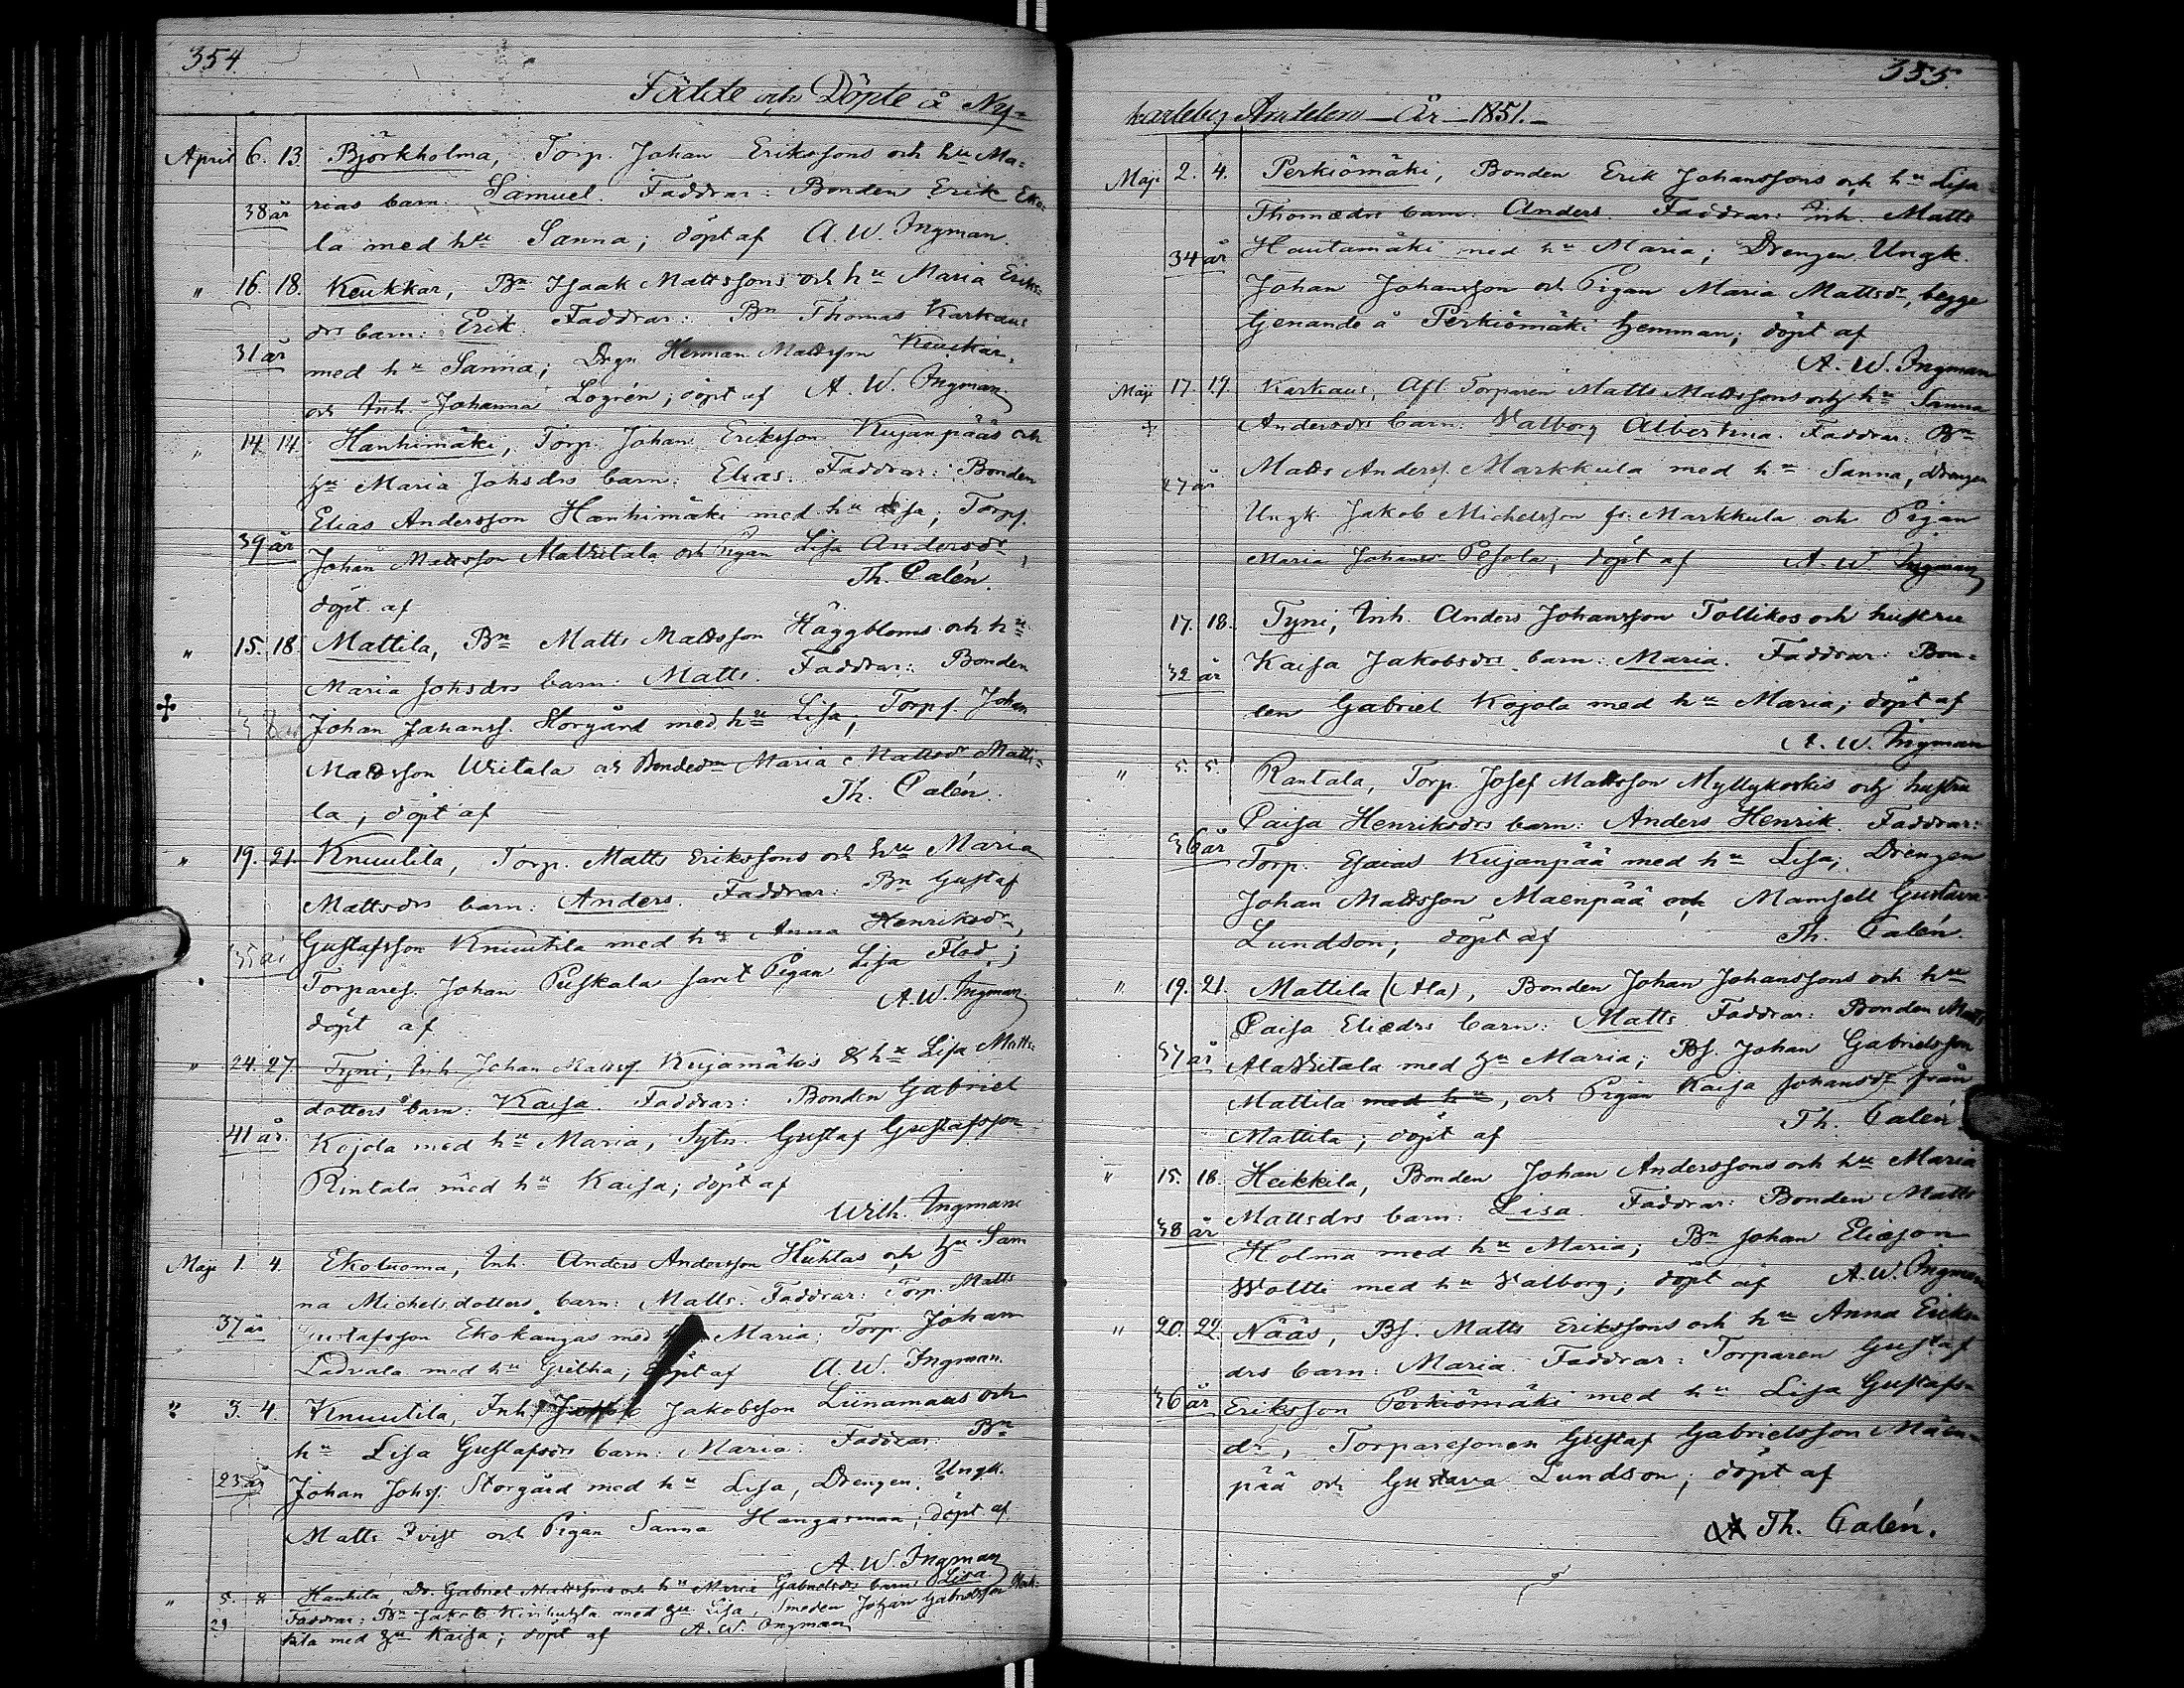 354
Födde och Döpte å Ny-
April 6. 13. Björkholma, Torp. Johan Erikssons och hu Ma-
38 år rias barn: Samuel. Faddrar: Bonden Erik Eko-
la med hu Sanna; döpt af A. W. Ingman.
" 16. 18. Keukkar, Bn Isaak Mattssons och hu Maria Eriks-
drs barn: Erik. Faddrar: Bn Thomas Karkaus
31 år med hu Sanna; Drgn Herman Mattsson Keuckar,
och Inh. Johanna Logrén; döpt af A. W. Ingman
" 14. 14. Hanhimäki, Torp. Johan Eriksson Kujanpääs och
hu Maria Johsdrs barn: Elias. Faddrar: Bonden
Elias Andersson Hanhimäki med hu Lisa; Torps.
39 år Johan Mattsson och Pigan Lisa Andersdr,
Th. Calén.
döpt af
" 15. 18. Mattila, Bn Matts Mattsson Häggbloms och hu
Maria Johsdrs barn: Matts. Faddrar: Bonden
Johan Johanss. Storgård med hu Lisa; Torps. Johan
Mattsson Writala och Maria Mattsdr Matti-
la; döpt af Th. Calén.
" 19. 21. Knuutila, Torp. Matts Erikssons och hu Maria
Mattsdrs barn: Anders. Faddrar: Bn Gustaf
Gustafsson Knuutila med hu Anna Henriksdr,
Torpares. Johan Puskala samt Pigan Lisa Flod;
A. W. Ingman
döpt af
" 24. 27. Tyni, Inh. Johan Mattss. Kujamäkis & hu Lisa Matts-
dotters barn: Kaisa. Faddrar: Bonden Gabriel
41 år. Kojola med hu Maria, Sytn. Gustaf Gustafsson
Rintala med hu Kaisa; döpt af
Wilh. Ingman
Maji 1. 4. Ekoluoma, Inh. Anders Andersson Huhtas och hu San
na Michelsdotters barn: Matts. Faddrar: Torp. Matts
37 år Gustafsson Ekokangas med Maria; Torp. Johan
Ladvala med hu Gretha; döpt af A. W. Ingman.
" 3. 4. Knuutila, Inh. Jakobsson Liinamaas och
hu Lisa Gustafsdrs barn: Maria. Faddrar: Bn
23 år Johan Johss. Storgård med hu Lisa, Drengen, Ungk.
Matts Qvist och Pigan Sanna Hangasmaa; döpt af
A. W. Ingman
" 5. 8 Hantila, Dr. Gabriel Mattssons och hu Maria Gabrielsdrs barn: Lisa
Faddrar: Bn Jakob med hu Lisa, Smeden Johan Gabrielsson
29 kila med hu Kaisa; döpt af A. W. Ingman
355.
karleby Andelen – År – 1851. –
Maji 2. 4. Perkiömäki, Bonden Erik Johanssons och hu Lisa
Thomædrs barn: Anders. Faddrar: Inh. Matts
34 år Hautamäki med hu Maria; Drengen Ungk.
Johan Johansson och Pigan Maria Mattsdr, begge
tjenande å Perkiömäki hemman; döpt af
A. W. Ingman
Maji 17. 19. Karkaus, Afl. Torparen Matts Mattssons och hu Sanna
Andersdrs barn: Valborg Albertina. Faddrar: Bn
27 år Matts Anderss. Markkula med hu Sanna, Drengen
Ungk. Jakob Michelsson fr. Markkula och Pigan
Maria Johansdr Pesola; döpt af A. W. Ingman
17. 18. Tyni, Inh. Anders Johansson Tollikos och hustru
32 år Kaisa Jakobsdrs barn: Maria. Faddrar: Bon-
den Gabriel Kojola med hu Maria; döpt af
A. W. Ingman
" 5. 5. Rantala, Torp. Josef Mattsson Myllykoskis och hustru
Caisa Henriksdrs barn: Anders Henrik. Faddrar:
36 år Torp. Esaias Kujanpää med hu Lisa; Drengen
Johan Mattsson Maenpää och Mamsell Gustava
Lundson; döpt af Th. Calén.
" 19. 21. Mattila (Ala), Bonden Johan Johanssons och hu
Caisa Eliædrs barn: Matts. Faddrar: Bonden Matts
37 år med hu Maria; Bs. Johan Gabrielsson
Mattila med hu, och Pigan Kaisa Johansdr från
Mattila; döpt af Th. Calén
" 15. 18. Heikkila, Bonden Johan Anderssons och hu Maria
Mattsdrs barn: Lisa. Faddrar: Bonden Matts
38 år Holma med hu Maria; Bn Johan Eliæson
Woltti med hu Valborg; döpt af A. W. Ingman
" 20. 22. Nääs, Bs. Matts Erikssons och hu Anna Eriks-
drs barn: Maria. Faddrar: Torparen Gustaf
36 år Eriksson Perkiömäki med hu Lisa Gustafs-
dr, Torparesonen Gustaf Gabrielsson Mäen-
pää och Gustava Lundson; döpt af
Th. Calén.